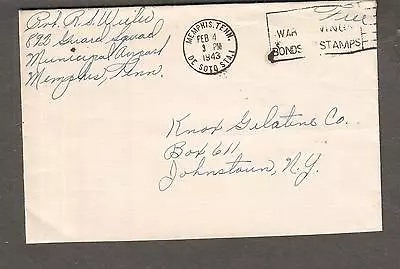 Pvt. R.S.
893 Guard Squad
Municipal Airport
Memphis, Tenn.
MEMPHIS, TENN.
FEB 4
3 PM
1943
DE SOTO STA.1
Free
WAR VING
BONDS STAMPS
Knox Gelatine Co.
Box 611,
Johnstown, N.Y.